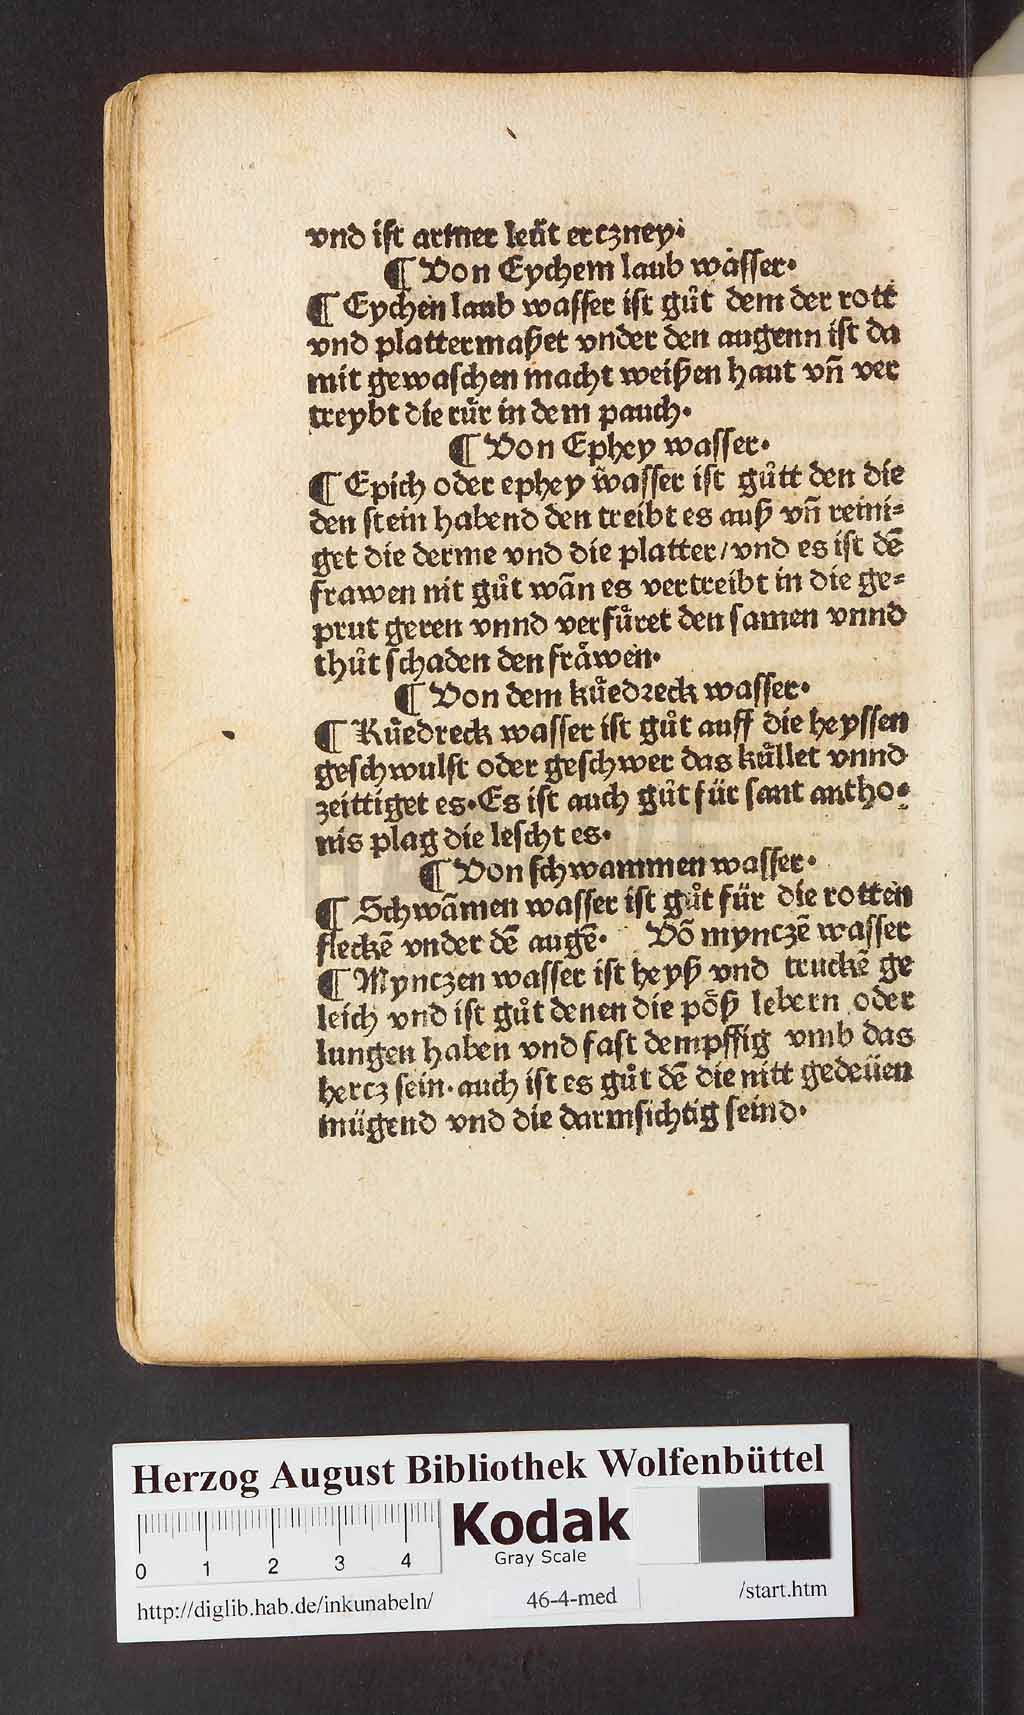 vnd ist armer leüt erczney.
¶ Von Eychem laub wasser.
¶ Eychen laub wasser ist gůt dem der rott
vnd plattermaßet vnder den augenn ist da
mit gewaschen macht weißen haut vn̄ ver
treybt die růr in dem pauch.
¶ Von Ephey wasser.
¶ Epich oder ephey wasser ist gůtt den die
den stein habend den treibt es auß vn̄ reini⸗
get die derme vnd die platter/vnd es ist dē
frawen nit gůt wān es vertreibt in die ge⸗
prut geren vnnd verfůret den samen vnnd
thůt schaden den fräwen.
¶ Von dem kůedreck wasser.
¶ Kůedreck wasser ist gůt auff die heyssen
geschwulst oder geschwer das kůllet vnnd
zeittiget es. Es ist auch gůt für sant antho⸗
nis plag die lescht es.
¶ Von schwammen wasser.
¶ Schwāmen wasser ist gůt für die rotten
fleckē vnder dē augē. Vō mynczē wasser
¶ Mynczen wasser ist heyß vnd truckē ge
leich vnd ist gůt denen die pöß lebern oder
lungen haben vnd fast dempffig vmb das
hercz sein. auch ist es gůt dē die nitt gedeüen
mügend vnd die darmsichtig seind.
Herzog August Bibliothek Wolfenbüttel
0 1 2 3 4
Kodak
Gray Scale
http://diglib.hab.de/inkunabeln/ 46-4-med /start.htm